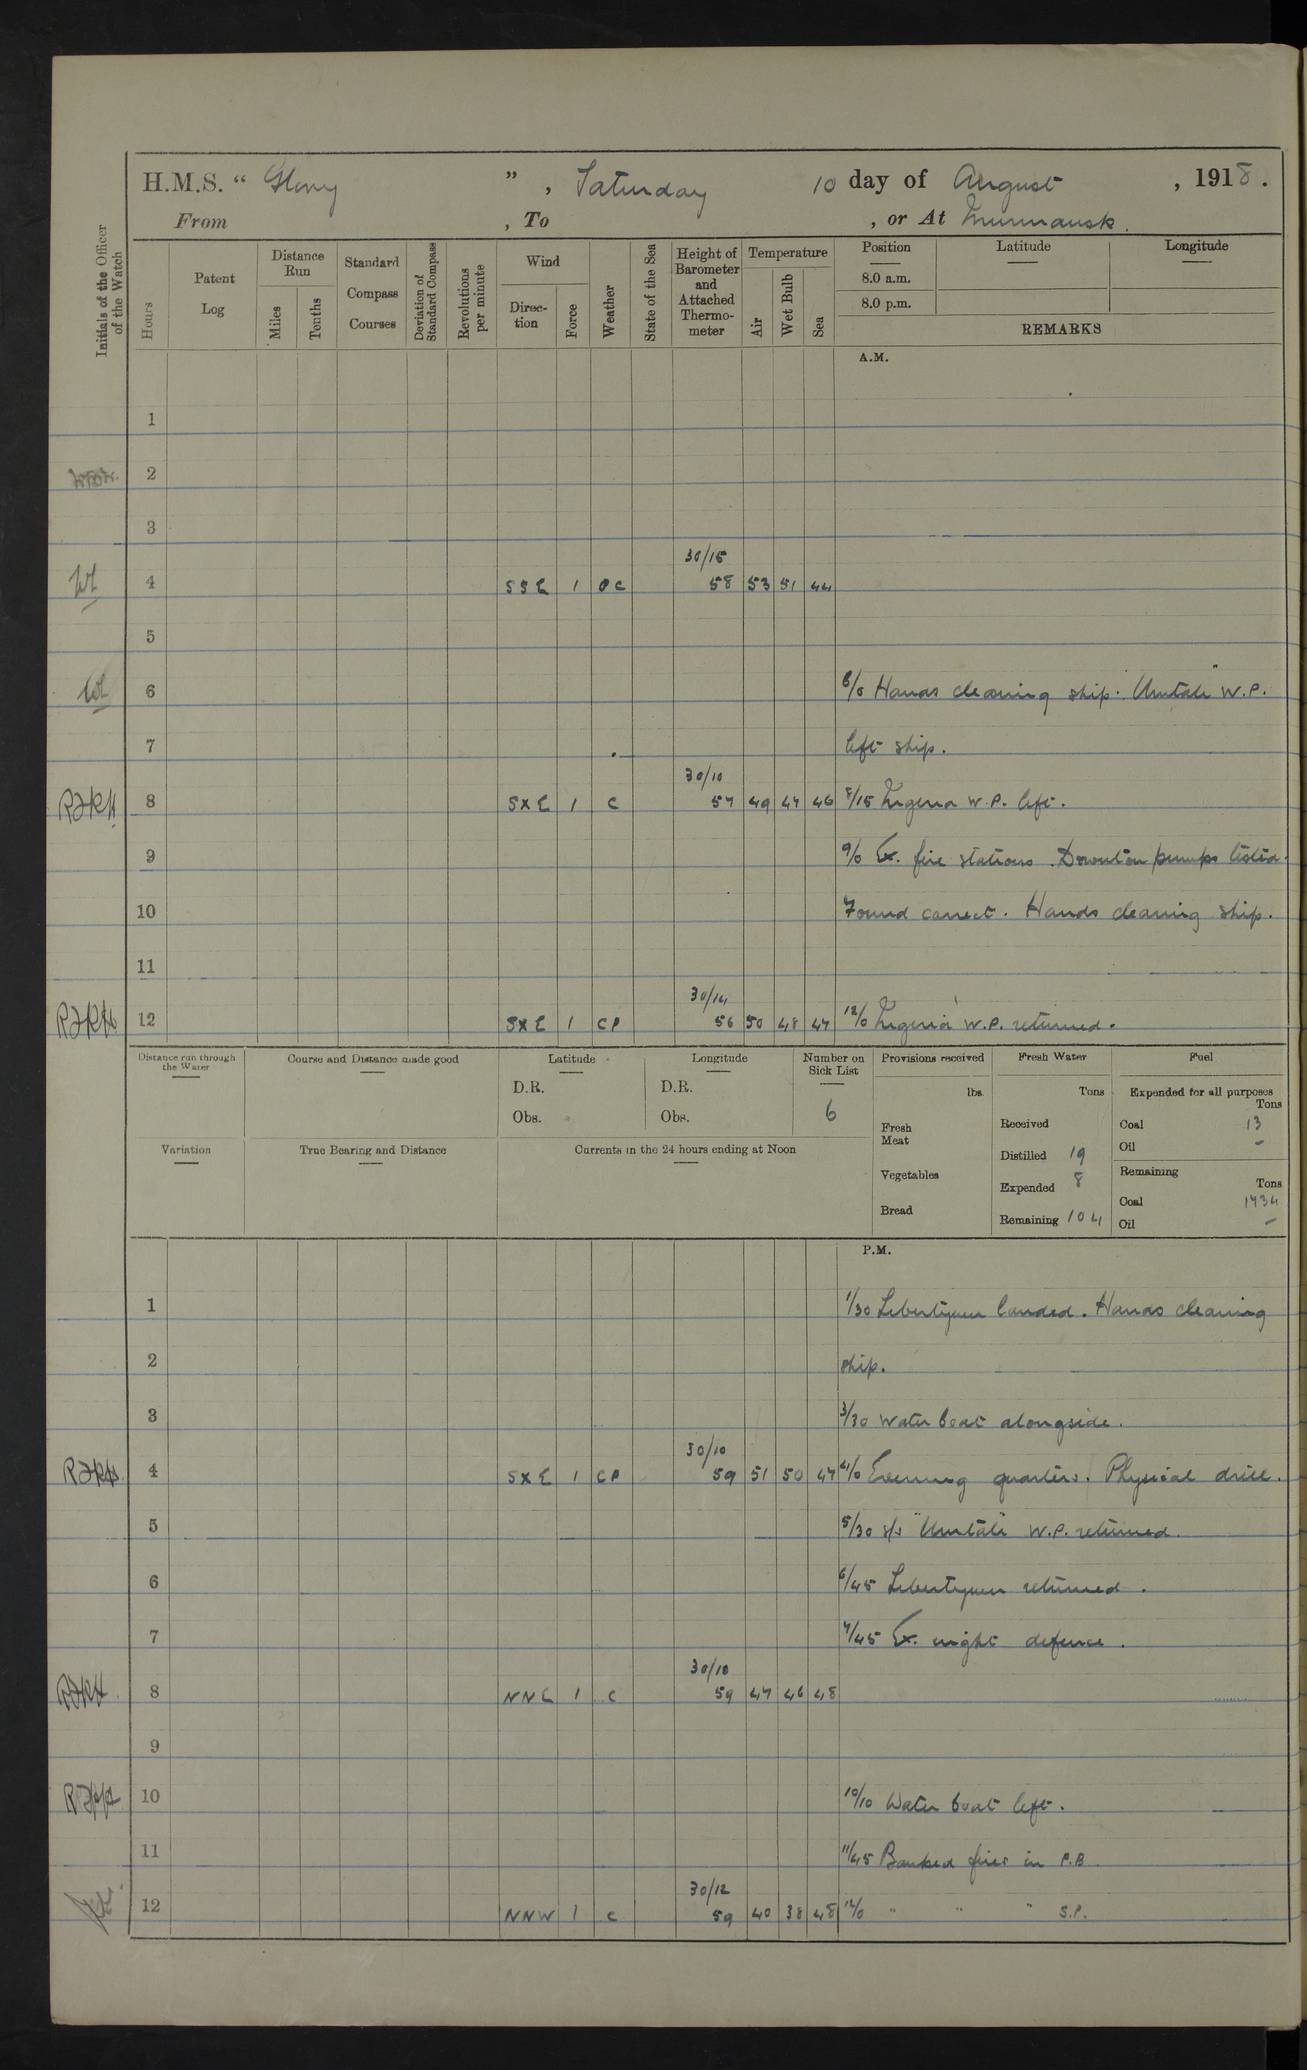 H.M.S. “ Glory ” , Saturday 10 day of August , 1918 .
From , To , or At Murmansk.
Initials of the Officer of the Watch
Hours
Patent Log
Distance Run
Miles
Tenths
Standard Compass Courses
Deviation of Standard Compass
Revolutions per minute
Wind
Direc-tion
Force
Weather
State of the Sea
Height of Barometer and Attached Thermo-meter
Temperature
Air
Wet Bulb
Sea
Position
8.0 a.m.
8.0 p.m.
Latitude
Longitude
REMARKS
A.M.
1
2
3
30/15
4 SSE 1 OC 58 53 51 44
5
6 6/0 Hands cleaning ship. "Umtali" W.P.
7 left ship.
30/10
8 SXE 1 C 57 49 47 46 8/15 Nigeria W.P. left.
9 9/0 Ex. fire stations. Downton pumps tested.
10 Found correct. Hands cleaning ship.
11
30/14
12 SXE 1 CP 56 50 48 47 12/0 Nigeria W.P. returned.
Distance run through the Water
Course and Distance made good
Latitude
D.R.
Obs.
Longitude
D.R.
Obs.
Number on Sick List
6
Provisions received
lbs.
Fresh Meat
Vegetables
Bread
Fresh Water
Tons
Received
Distilled 19
Expended 8
Remaining 104
Fuel
Expended for all purposes
Tons
Coal 13
Oil –
Remaining
Tons
Coal 1734
Oil –
Variation
True Bearing and Distance
Currents in the 24 hours ending at Noon
P.M.
1 1/30 Libertymen landed. Hands cleaning
2 ship.
3 3/30 Water boat alongside.
30/10
4 SXE 1 CP 59 51 50 47 4/0 Evening quarters. Physical drill.
5 5/30 s/s "Umtali" W.P. returned.
6 6/45 Libertymen returned.
7 7/45 Ex. night defence.
30/10
8 NNE 1 C 59 47 46 48
9
10 10/10 Water boat left.
11 11/45 Banked fires in P.B.
30/12
12 NNW 1 C 59 40 38 48 12/0 " " " S.P.